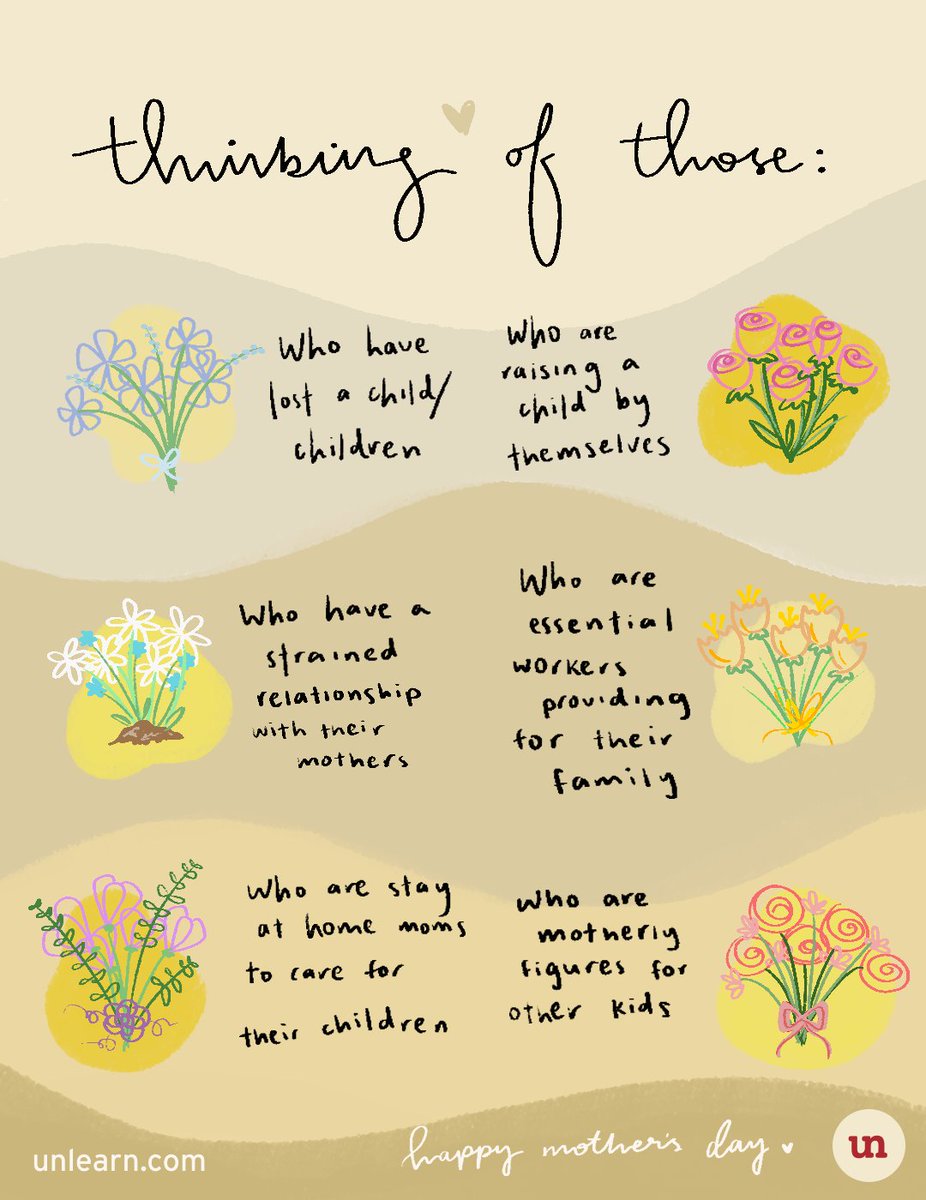 thinking of those:
Who have
lost a child/
children
Who are
raising a
child by
themselves
Who have a
strained
relationship
with their
mothers
Who are
essential
workers
providing
for their
family
Who are stay
at home moms
to care for
their children
Who are
motherly
figures for
other kids
unlearn.com
happy mother's day
un